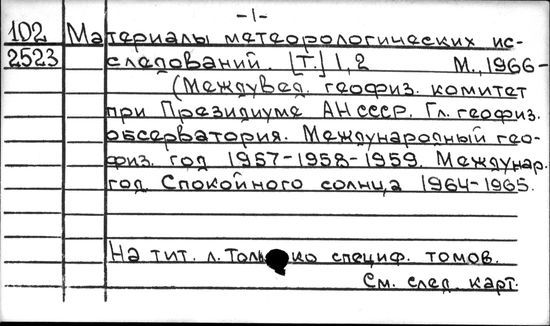 -1-
102 Материалы метеорологических ис-
2523 следований. [Т.] 1, 2 М., 1966-
(Междувед. геофиз. комитет
при Президиуме АН СССР. Гл. геофиз.
обсерватория. Международный гео-
физ. год 1957-1958-1959. Междунар.
год Спокойного солнца 1964-1965.
На тит. л. только специф. томов.
См. след. карт.